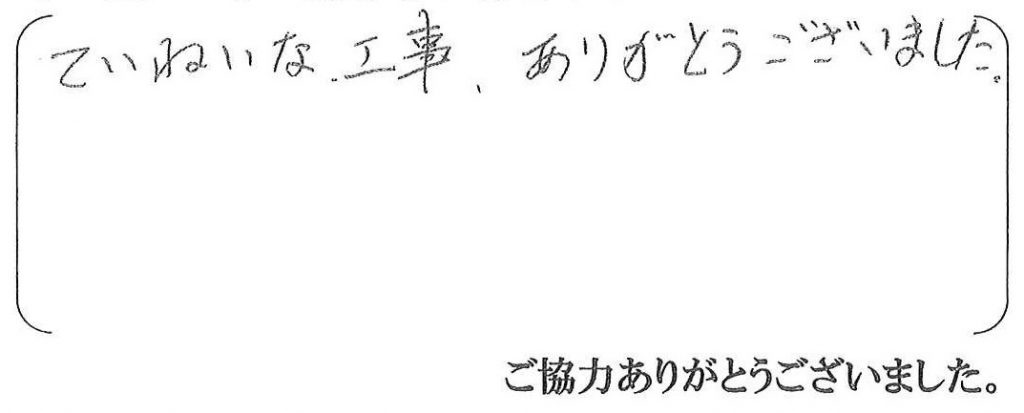 ていねいな工事、ありがとうございました。
ご協力ありがとうございました。